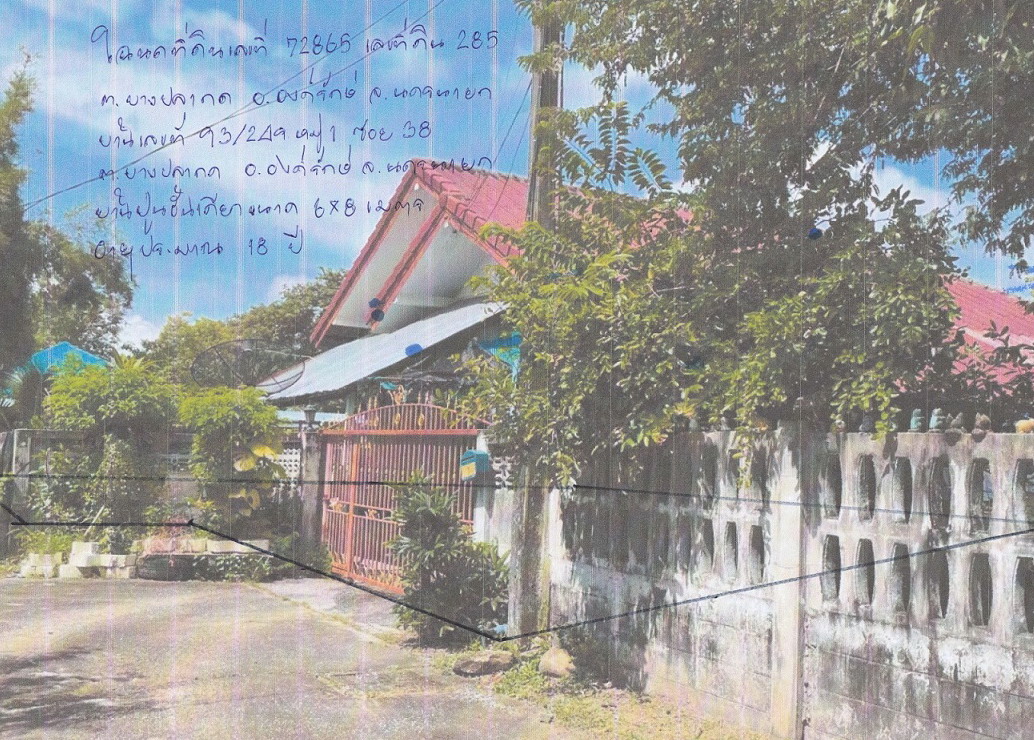 โฉนดที่ดินเลขที่ 72865 เลขที่ดิน 285
ต.บางปลากด อ.องครักษ์ จ.นครนายก
บ้านเลขที่ 93/249 หมู่ 1 ซอย 38
ต.บางปลากด อ.องครักษ์ จ.นครนายก
บ้านปูนชั้นเดียว ขนาด 6x8 เมตร
อายุประมาณ 18 ปี